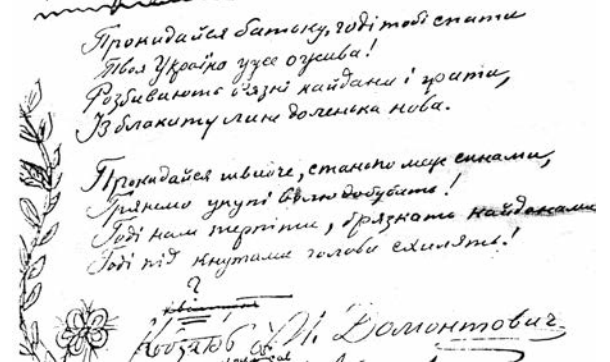 Прокидайся батьку, годі тобі спати
Твоя Україна уже ожива!
Розбивають вязні кайдани і грати,
Із блакиту лине доленька нова.
Прокидайся швидче, стань по меж синами,
Грянемо укупі волю добувать!
Годі нам терпіти, брязкать кайданами
Годі під кнутами голови схилять!
?
Кобзарю
Домонтович